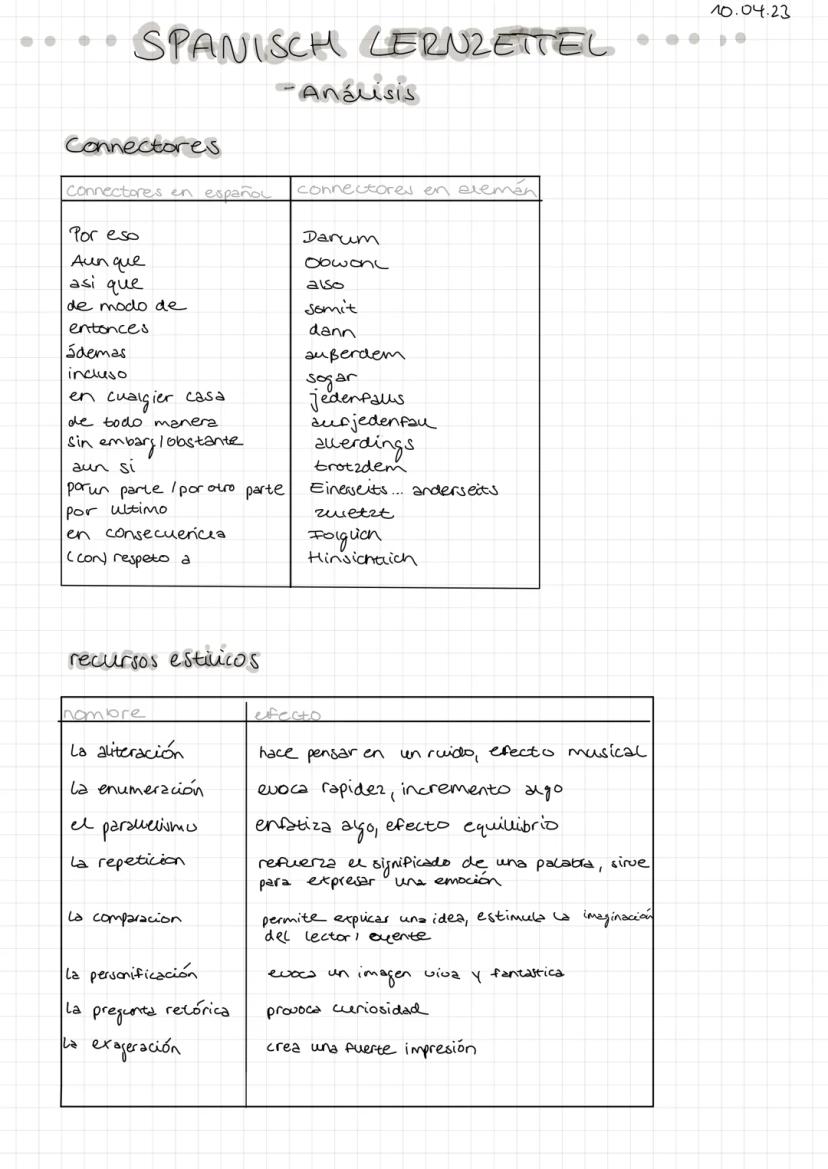 10.04.23
SPANISCH LERNZETTEL
- Análisis
Connectores
Connectores en español connectores en alemán
Por eso Darum
Aun que Obwohl
asi que also
de modo de somit
entonces dann
ádemas außerdem
incluso sogar
en cualgier casa jedenfalls
de todo manera aufjedenfall
sin embarg/obstante allerdings
aun si trotzdem
porun parte / por otro parte Einerseits... anderseits
por ultimo zuletzt
en consecuencia Folglich
(con) respeto a Hinsichtlich
recursos estilicos
nombre efecto
La aliteración hace pensar en un ruido, efecto musical
La enumeración evoca rapidez, incremento algo
el paralelismo enfatiza algo, efecto equilibrio
La repeticion refuerza el significado de una palabra, sirve
para expresar una emoción
La comparacion permite explicar una idea, estimula la imaginación
del lector / oyente
La personificación evoca un imagen viva y fantastica
La pregunta retórica provoca curiosidad
La exageración crea una fuerte impresión